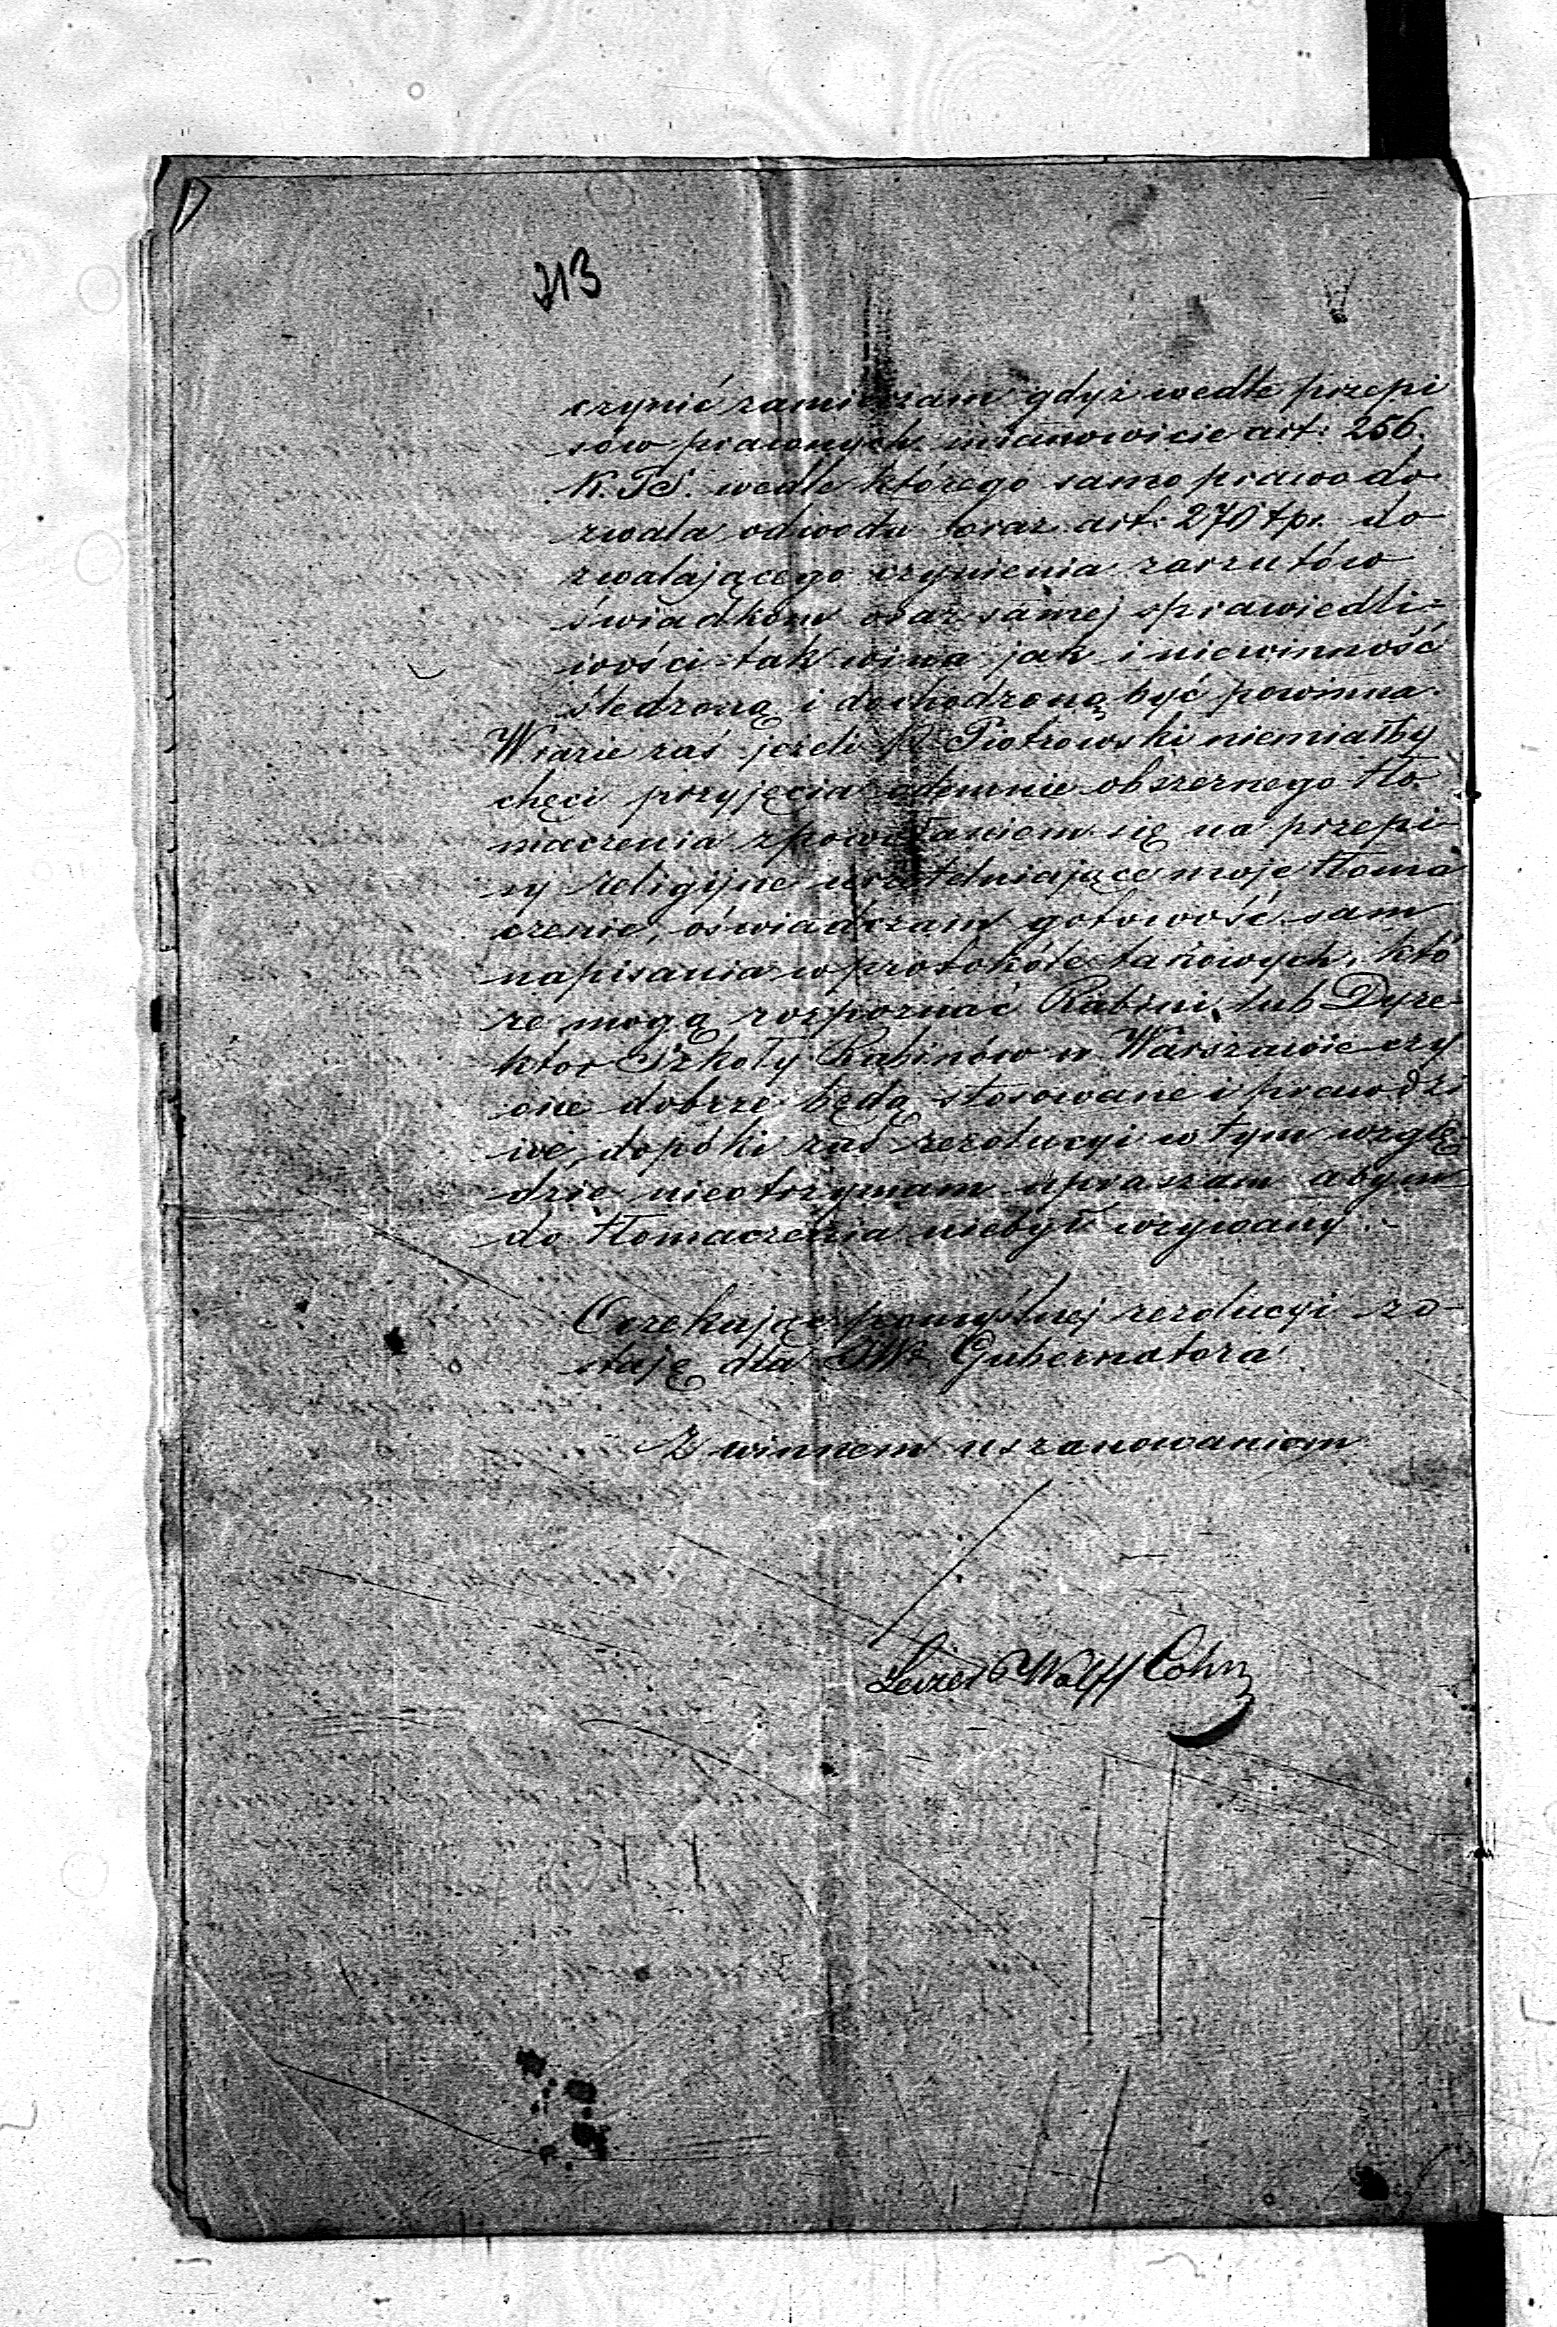 213
czynić zamierzam gdyż wedle przepi
sów prawnych mianowicie art: 256.
K. P. S. wedle którego samo prawo do
zwala odwodu oraz art: 270 tpr. do
zwalającego czynienia zarzutów
świadkom oraz samej sprawiedli=
wości tak wina jak i niewinność
śledzoną i dochodzoną być powinna.
W razie zaś jeżeli P. Piotrowski niemiałby
chęci przyjęcia odemnie obszernego tło
maczenia z powołaniem się na przepi-
sy religijne urzetelniające moje tłoma
czenie, oświadczam gotowość sam
napisania w protokóle takowych, któ
re mogą rozpoznać Rabini, lub Dyre-
ktor Szkoły Rabinów w Warszawie czy
one dobrze będą stosowane i prawdzi
we, dopóki zaś rezolucyi w tym wzglę-
dzie nieotrzymam upraszam abym
do tłomaczenia niebył wzywany.
Oczekając pomyślnej rezolucyi zo-
staję dla JWo Gubernatora
Z winnem uszanowaniem
Leizer Wolff Cohn